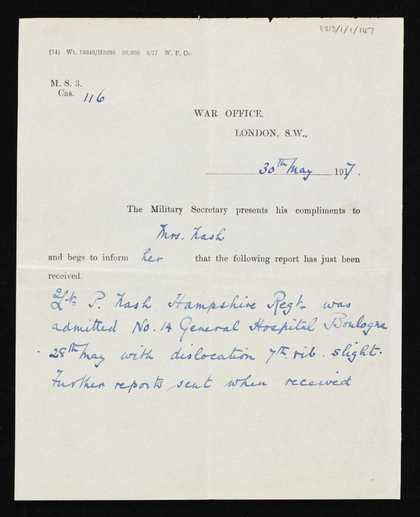 (14) Wt. 5/17 W. P. Co.
M. S. 3.
Cas. 116
WAR OFFICE,
LONDON, S.W.,
30th May 1917.
The Military Secretary presents his compliments to
Mrs. Nash
and begs to inform her that the following report has just been
received.
2/Lt. P. Nash Hampshire Regt. was
admitted No. 14 General Hospital Boulogne
28th May with dislocation 7th rib. slight.
Further reports sent when received